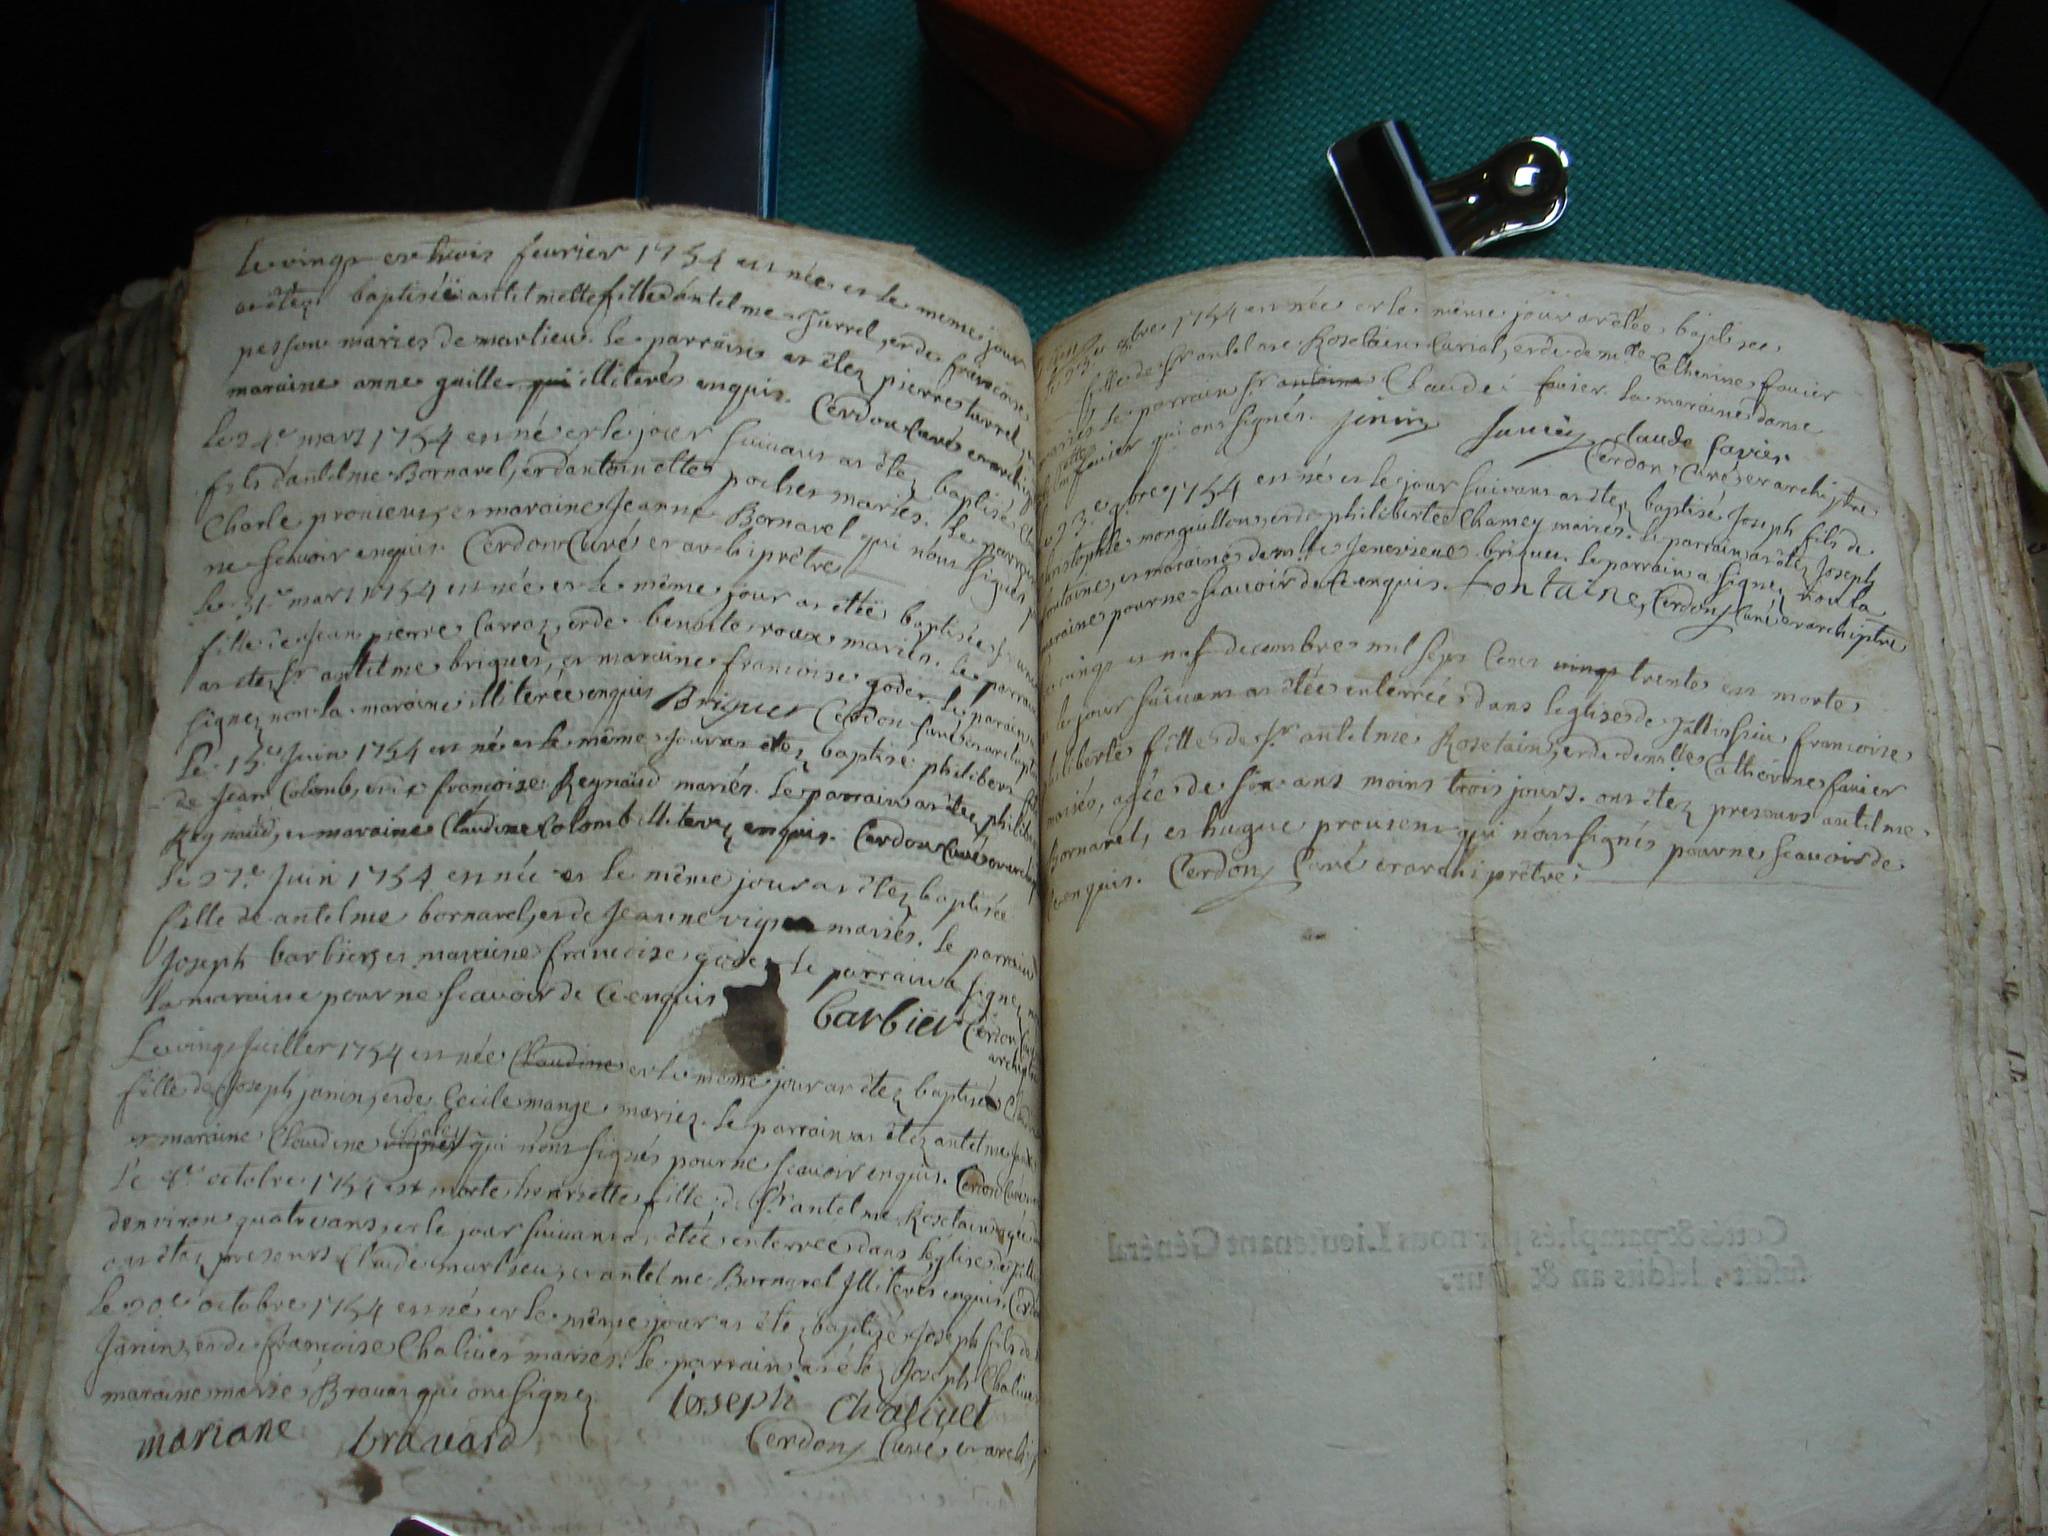 Le vingt et trois fevrier 1754 est née et le meme jour
a étez baptiséë antelmette fille dantelme Turrel, et de francoise
pesson mariés de marlieu. Le parrain at étez pierre turrel,
maraine anne guille qui illiterés enquis. Cerdon Curé et archip
Le 24e mars 1754 est né et le jour suivant at étez baptisé
fils dantelme Bornarel, et dantoinette pochet mariés. Le parrain
Charle provient, et maraine Jeanne Bornarel qui n'ont signez
ne scavoir enquis. Cerdon Curé et archiprêtre
Le 31e mars 1754 est née et le même jour at étéë baptiséë
fille de Jean pierre Carraz, et de benoite roux mariés. Le parrain
at étez Sr antelme briquet, et maraine francoise godet. Le parain a
signez non la maraine illiterée enquis Briquet Cerdon Curé et archip
Le 15e Juin 1754 est né et le même jour at étez baptisé philibert
de Jean Colomb, et de françoise Reynaud mariés. Le parrain at étez philibe
Reynaud, et maraine Claudine Colomb illiterez enquis. Cerdon Curé et archip
Le 27e Juin 1754 est née et le même jour at étez baptisée
fille de antelme bornarel, et de Jeanne mariés. Le parrain
Joseph barbier, et maraine francoise godet Le parrain a signez
la maraine pour ne scavoir de ce enquis barbier Cerdon Curé
archiptre
Le vingt Juillet 1754 est née Claudine et le même jour at étez baptisé
fille de Joseph janin, et de Cecile mange mariez. Le parrain at étez antelme
et maraine Claudine qui n'ont signés pour ne scavoir enquis. Cerdon Curé
Le 4e octobre 1754 est morte henriette fille de Sr antelme Rosetain agée
denviron quatre ans, et le jour suivant at étée enterrée dans léglise de
ont étez presents Claude marlieu, et antelme Bornarel Illiterés enquis. Cerdon
Le 20e octobre 1754 est né et le même jour at étez baptizé Joseph fils de
Janin, et de françoise Chalivet mariés. Le parrain at étez Joseph Chalivet
maraine marie Bravat qui ont signez
ioseph chalivet
mariane bravard
Cerdon Curé et archip
9bre 1754 est née et le même jour at étée baptisee
fille de Sr antelme Rosetain Curial, et de demlle Catherine favier
mariés Le parrain Sr antoine Claude favier La maraine danse
favier qui ont signés. janin favier claude favier
Cerdon Curé et archiptre
23e 9bre 1754 est né et le jour suivant at étez baptisé Joseph fils de
christophle monguillon, et de philiberte Chamey mariés. Le parrain at étez Joseph
fontaine, et maraine demlle Jenevieve briquet. Le parrain a signez non la
maraine pour ne scavoir de Ce enquis. fontaine, Cerdon Curé et archiptre
Le vingt et neuf decembre mil sept Cent vingt trente est morte
et le jour suivant at étée enterrée dans leglise de francoise
philiberte fille de Sr antelme Rosetain, et de demlle Catherine favier
mariés, agée de six ans moins trois jours. ont étez presents antelme
Bornarel, et hugue prousent qui n'ont signés pour ne scavoir de
Ce enquis. Cerdon Curé et archiprêtre
Cottés & paraphés par nous Lieutenant Général
susdit, lesdits an & jour.